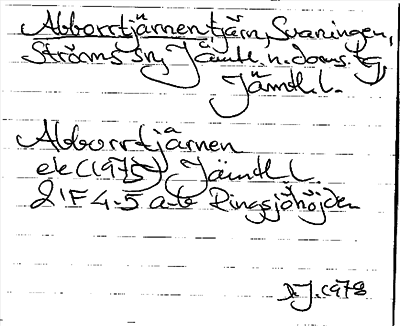 Abborrtjärnen, tjärn, Svaningen,
Ströms sn, Jämtl. n. doms. tg,
Jämtl. l.
Abborrtjärnen
ek (1975) Jämtl. l.
21F 4-5 a-b Ringsjöhöjden
D.J. 1978